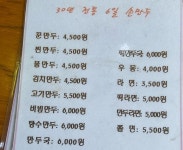 30년 전통 수제 손만두
군만두: 4,500원
찐만두: 4,500원
물만두: 4,500원
김치만두: 4,500원
고기만두: 5,500원
비빔만두: 6,000원
탕수만두: 6,000원
만두국: 6,000원
떡만두국: 6,000원
우동: 4,000원
라면: 3,500원
떡라면: 5,000원
만두라면: 5,000원
쫄면: 5,500원